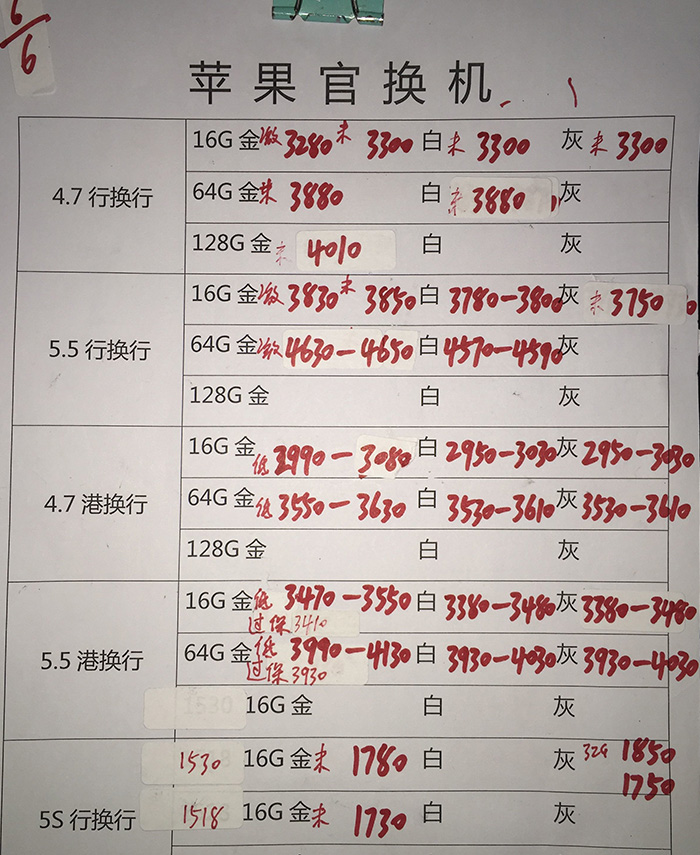 6/6
苹果官换机
4.7 行换行
16G 金 激 3280 未 3300 白 未 3300 灰 未 3300
64G 金 未 3880 白 未 3880 灰
128G 金 未 4010 白 灰
5.5 行换行
16G 金 激 3830 未 3850 白 3780-3800 灰 未 3750
64G 金 激 4630-4650 白 4570-4590 灰
128G 金 白 灰
4.7 港换行
16G 金 低 2990-3080 白 2950-3030 灰 2950-3030
64G 金 低 3550-3630 白 3530-3610 灰 3530-3610
128G 金 白 灰
5.5 港换行
16G 金 低 3470-3550 白 3380-3480 灰 3380-3480
过保 3410
64G 金 低 3990-4130 白 3930-4030 灰 3930-4030
过保 3930
1530 16G 金 白 灰
5S 行换行
1530 16G 金 未 1780 白 灰 32G 1850
1750
1518 16G 金 未 1730 白 灰